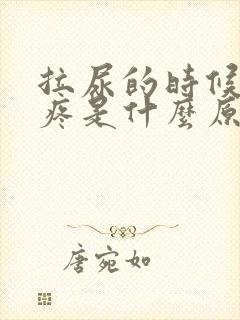 拉尿的時候
疼是什麼原
唐宛如